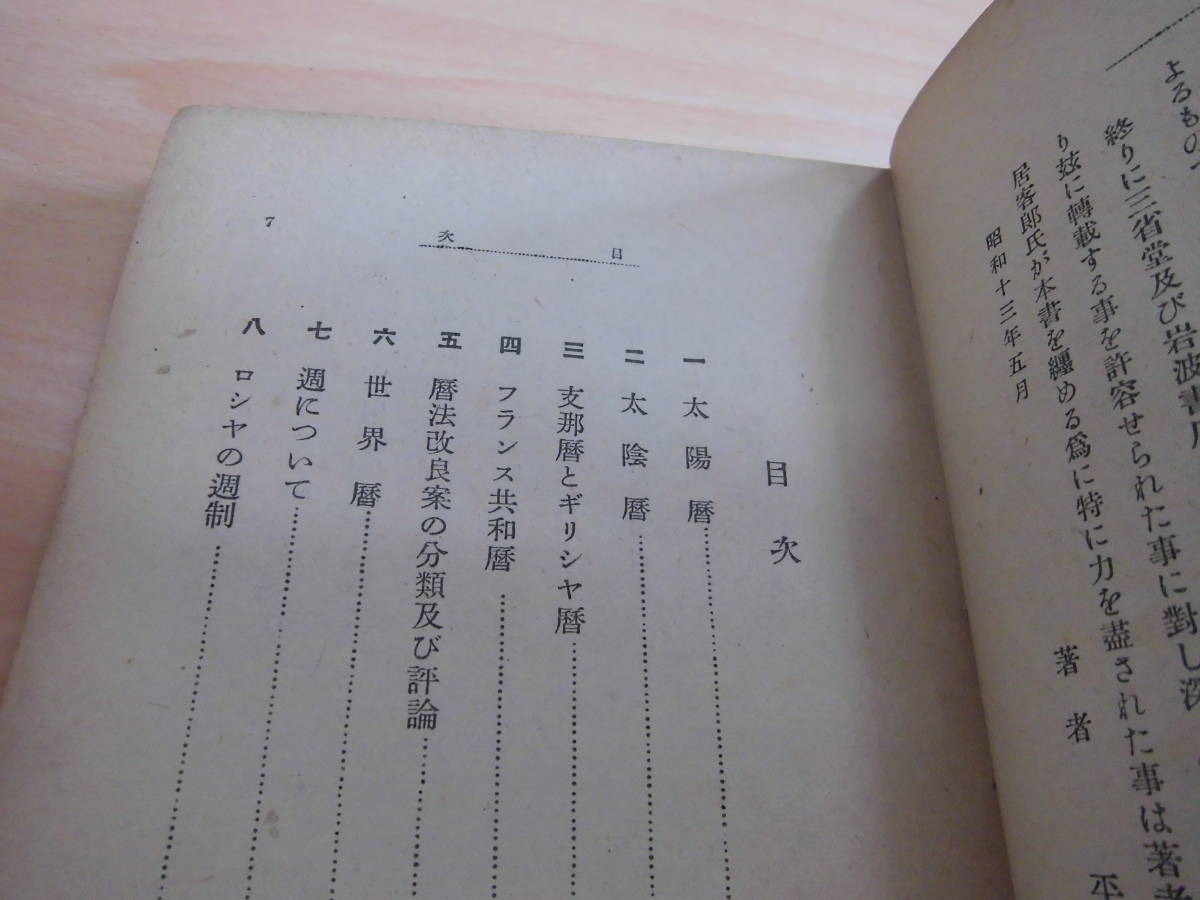 よるもので
終りに三省堂及び岩波書店
り玆に轉載する事を許容せられた事に對し深
居客郎氏が本書を纏める爲に特に力を盡された事は著者
昭和十三年五月
著者 平
目次
目次
一 太陽曆
二 太陰曆
三 支那曆とギリシヤ曆
四 フランス共和曆
五 曆法改良案の分類及び評論
六 世界曆
七 週について
八 ロシヤの週制
7